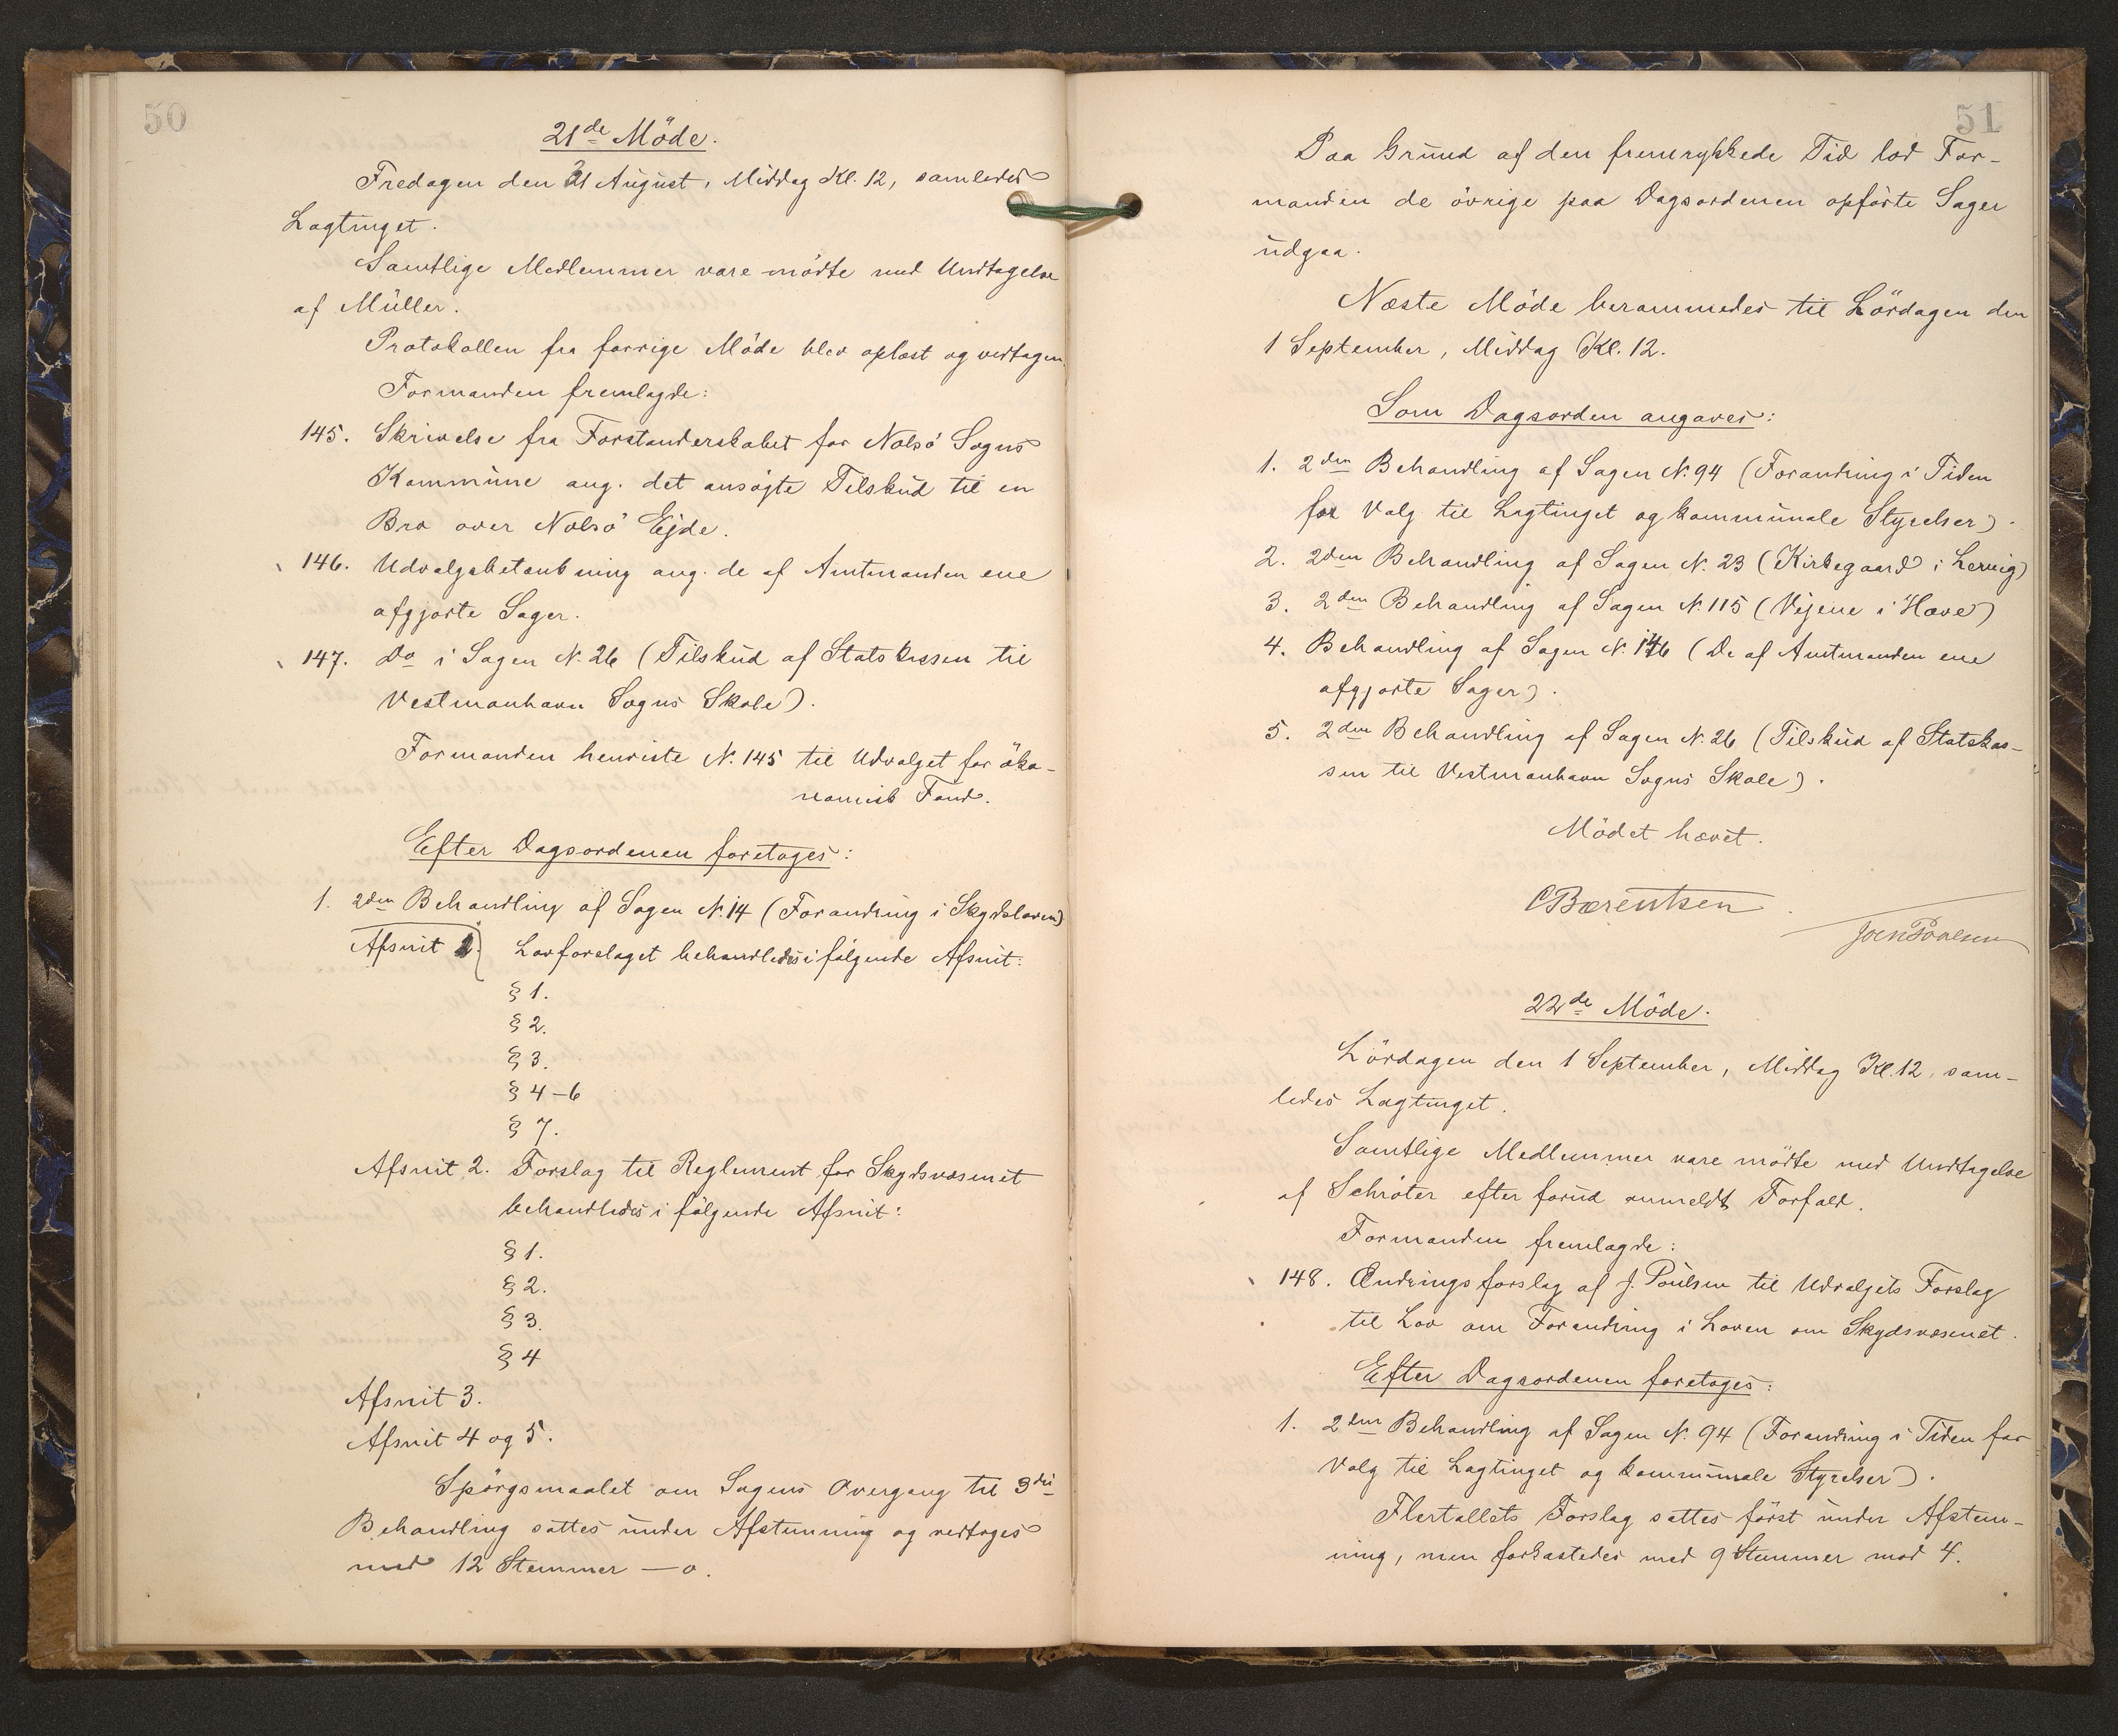 50
21de Möde.
Fredagen den 31 August, Middag Kl. 12, samledes
Lagtinget.
Samtlige Medlemmer vare mödte med Undtagelse
af Müller.
Protokollen fra forrige Möde blev oplæst og vedtagen.
Formanden fremlagde:
145. Skrivelse fra Forstanderskabet for Nolsö Sogns
Kommune ang. det ansögte Tilskud til en
Bro over Nolsö Ejde.
146. Udvalgsbetænkning ang. de af Amtmanden ene
afgjorte Sager.
147. Do i Sagen N. 26 (Tilskud af Statskassen til
Vestmanhavn Sogns Skole).
Formanden henviste N. 145 til Udvalget for öko-
nomisk Fond.
Efter Dagsordenen foretoges:
1. 2den Behandling af Sagen N. 14 (Forandring i Skydsloven)
Afsnit 1. Lovforslaget behandledes i fölgende Afsnit:
§ 1.
§ 2.
§ 3.
§ 4-6
§ 7.
Afsnit 2. Forslag til Reglement for Skydsvæsenet
behandledes i fölgende Afsnit:
§ 1.
§ 2.
§ 3.
§ 4
Afsnit 3.
Afsnit 4 og 5.
Spörgsmaalet om Sagens Overgang til 3die
Behandling sattes under Afstemning og vedtoges
med 12 Stemmer — 0.
51
Paa Grund af den fremrykkede Tid lod For-
manden de övrige paa Dagsordenen opförte Sager
udgaa.
Næste Möde berammedes til Lördagen den
1 September, Middag Kl. 12.
Som Dagsorden angaves:
1. 2den Behandling af Sagen N. 94 (Forandring i Tiden
for Valg til Lagtinget og kommunale Styrelser).
2. 2den Behandling af Sagen N. 23 (Kirkegaard i Lervig)
3. 2den Behandling af Sagen N. 115 (Vejene i Høve)
4. Behandling af Sagen N. 146 (De af Amtmanden ene
afgjorte Sager).
5. 2den Behandling af Sagen N. 26 (Tilskud af Statskas-
sen til Vestmanhavn Sogns Skole).
Mödet hævet.
CBærentsen
Joen Poulsen
22de Möde.
Lördagen den 1 September, Middag Kl. 12, sam-
ledes Lagtinget.
Samtlige Medlemmer vare mödte med Undtagelse
af Schröter efter forud anmeldt Forfald.
Formanden fremlagde:
148. Ændringsforslag af J. Poulsen til Udvalgets Forslag
til Lov om Forandring i Loven om Skydsvæsenet.
Efter Dagsordenen foretoges:
1. 2den Behandling af Sagen N. 94 (Forandring i Tiden for
Valg til Lagtinget og kommunale Styrelser).
Flertallets Forslag sattes först under Afstem-
ning, men forkastedes med 9 Stemmer mod 4.